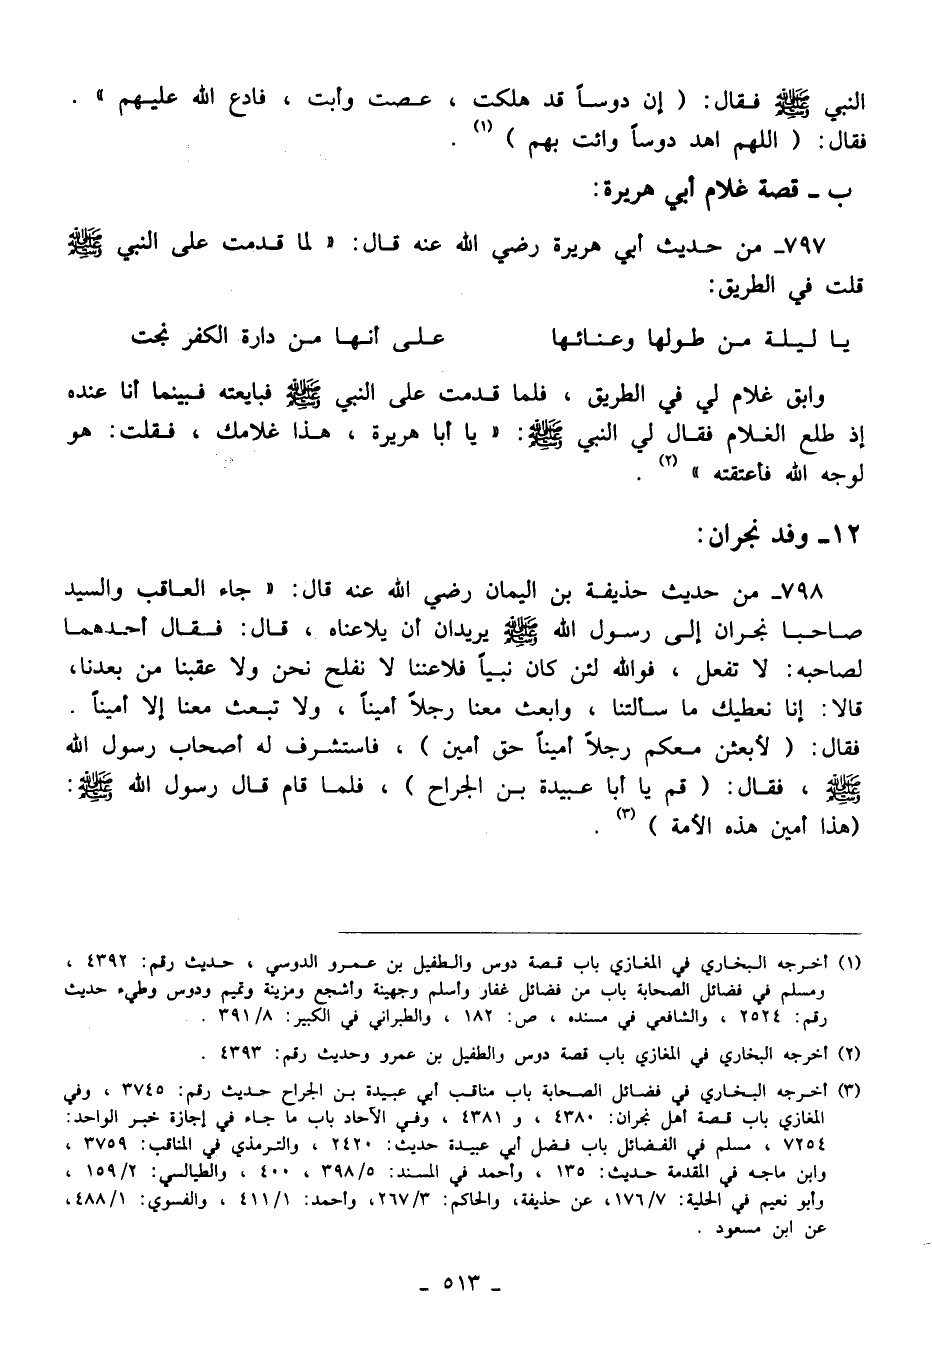 النبي ﷺ فقال: ( إن دوساً قد هلكت ، عصت وأبت ، فادع الله عليهم » .
فقال: ( اللهم اهد دوساً وائت بهم ) (١) .
ب ـ قصة غلام أبي هريرة:
٧٩٧ـ من حديث أبي هريرة رضي الله عنه قال: « لما قدمت على النبي ﷺ
قلت في الطريق:
يا ليلة من طولها وعنائها على أنها من دارة الكفر نجت
وابق غلام لي في الطريق ، فلما قدمت على النبي ﷺ فبايعته فبينما أنا عنده
إذ طلع الغلام فقال لي النبي ﷺ: « يا أبا هريرة ، هذا غلامك ، فقلت: هو
لوجه الله فأعتقته » (٢) .
١٢ـ وفد نجران:
٧٩٨ـ من حديث حذيفة بن اليمان رضي الله عنه قال: « جاء العاقب والسيد
صاحبا نجران إلى رسول الله ﷺ يريدان أن يلاعناه ، قال: فقال أحدهما
لصاحبه: لا تفعل ، فوالله لئن كان نبياً فلاعننا لا نفلح نحن ولا عقبنا من بعدنا،
قالا: إنا نعطيك ما سألتنا ، وابعث معنا رجلاً أميناً ، ولا تبعث معنا إلا أميناً .
فقال: ( لأبعثن معكم رجلاً أميناً حق أمين ) ، فاستشرف له أصحاب رسول الله
ﷺ ، فقال: ( قم يا أبا عبيدة بن الجراح ) ، فلما قام قال رسول الله ﷺ:
(هذا أمين هذه الأمة ) (٣) .
(١) أخرجه البخاري في المغازي باب قصة دوس والطفيل بن عمرو الدوسي ، حديث رقم: ٤٣٩٢ ،
ومسلم في فضائل الصحابة باب من فضائل غفار وأسلم وجهينة وأشجع ومزينة وتميم ودوس وطيء حديث
رقم: ٢٥٢٤ ، والشافعي في مسنده ، ص: ١٨٢ ، والطبراني في الكبير: ٣٩١/٨ .
(٢) أخرجه البخاري في المغازي باب قصة دوس والطفيل بن عمرو وحديث رقم: ٤٣٩٣ .
(٣) أخرجه البخاري في فضائل الصحابة باب مناقب أبي عبيدة بن الجراح حديث رقم: ٣٧٤٥ ، وفي
المغازي باب قصة أهل نجران: ٤٣٨٠ ، و ٤٣٨١ ، وفي الآحاد باب ما جاء في إجازة خبر الواحد:
٧٢٥٤ ، مسلم في الفضائل باب فضل أبي عبيدة حديث: ٢٤٢٠ ، والترمذي في المناقب: ٣٧٥٩ ،
وابن ماجه في المقدمة حديث: ١٣٥ ، وأحمد في المسند: ٣٩٨/٥ ، ٤٠٠ ، والطيالسي: ١٥٩/٢ ،
وأبو نعيم في الحلية: ١٧٦/٧، عن حذيفة، والحاكم: ٢٦٧/٣، وأحمد: ٤١١/١ ، والفسوي: ٤٨٨/١،
عن ابن مسعود .
ـ ٥١٣ ـ